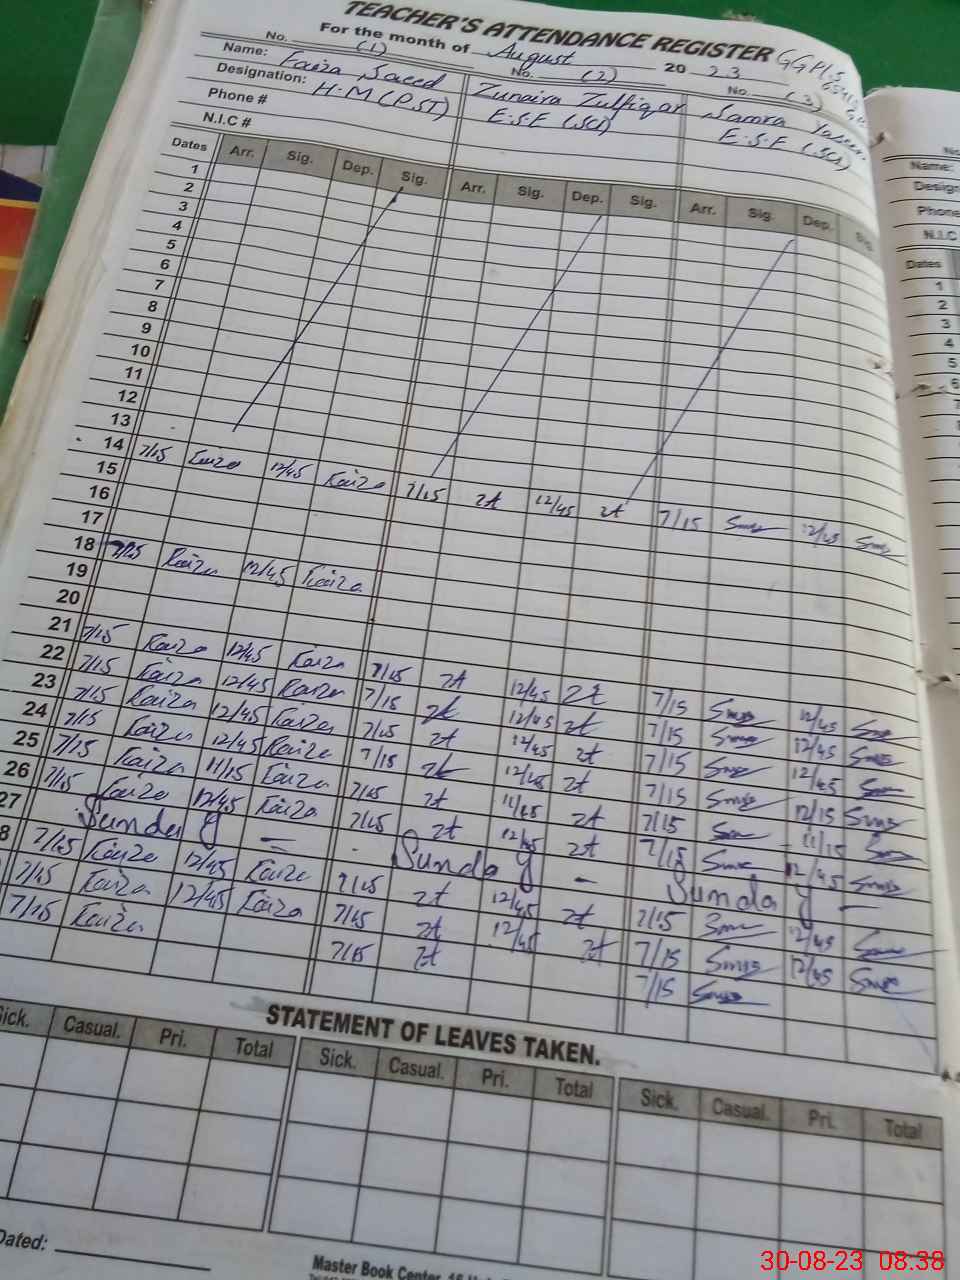 TEACHER'S ATTENDANCE REGISTER
For the month of August 2023 GGPS
No. (1) No. (2) No. (3)
Name: Faiza Saeed Zunaira Zulfiqar Samra
Designation: H.M (PST) E.S.E (SCI) E.S.E (SCI)
Phone #
N.I.C #
Dates Arr. Sig. Dep. Sig. Arr. Sig. Dep. Sig. Arr. Sig. Dep. Sig.
1
2
3
4
5
6
7
8
9
10
11
12
13
14 7/15 Faiza 12/45 Faiza 7/15 zt 12/45 zt 7/15 12/45
15
16
17
18 7/15 Faiza 12/45 Faiza
19
20
21 7/15 Faiza 12/45 Faiza 7/15 zt 12/45 zt 7/15 12/45
22 7/15 Faiza 12/45 Faiza 7/15 zt 12/45 zt 7/15 12/45
23 7/15 Faiza 12/45 Faiza 7/15 zt 12/45 zt 7/15 12/45
24 7/15 Faiza 12/45 Faiza 7/15 zt 12/45 zt 7/15 12/15
25 7/15 Faiza 11/15 Faiza 7/15 zt 11/15 zt 7/15 11/15
26 7/15 Faiza 12/45 Faiza 7/15 zt 12/45 zt 7/15 12/45
27 Sunday – Sunday – Sunday –
8 7/15 Faiza 12/45 Faiza 7/15 zt 12/45 zt 7/15 12/45
7/15 Faiza 12/45 Faiza 7/15 zt 12/45 zt 7/15 12/45
7/15 Faiza 7/15 zt 7/15
STATEMENT OF LEAVES TAKEN.
Sick. Casual. Pri. Total Sick. Casual. Pri. Total Sick. Casual. Pri. Total
Dated:
Master Book Center
No
Name:
Design
Phone
N.I.C
Dates
1
2
3
4
5
6
30-08-23 08:38